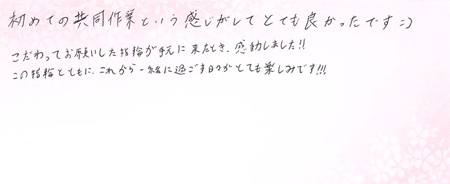 初めての共同作業という感じがしてとても良かったです:)
こだわってお願いした指輪が手元に来たとき、感動しました!!
この指輪とともに、これから一緒に過ごす日々がとても楽しみです!!!